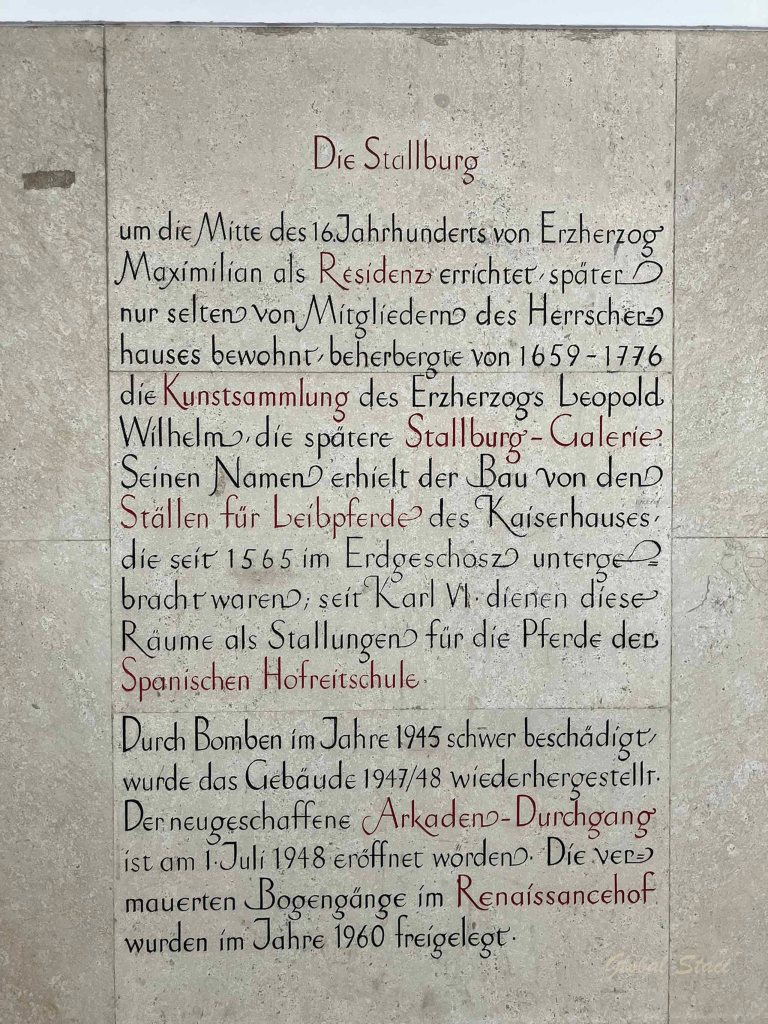 Die Stallburg
um die Mitte des 16. Jahrhunderts von Erzherzog
Maximilian als Residenz errichtet, später
nur selten von Mitgliedern des Herrscher=
hauses bewohnt, beherbergte von 1659-1776
die Kunstsammlung des Erzherzogs Leopold
Wilhelm, die spätere Stallburg-Galerie.
Seinen Namen erhielt der Bau von den
Ställen für Leibpferde des Kaiserhauses,
die seit 1565 im Erdgeschosz unterge=
bracht waren; seit Karl VI. dienen diese
Räume als Stallungen für die Pferde der
Spanischen Hofreitschule.
Durch Bomben im Jahre 1945 schwer beschädigt,
wurde das Gebäude 1947/48 wiederhergestellt.
Der neugeschaffene Arkaden-Durchgang
ist am 1. Juli 1948 eröffnet worden. Die ver=
mauerten Bogengänge im Renaissancehof
wurden im Jahre 1960 freigelegt.